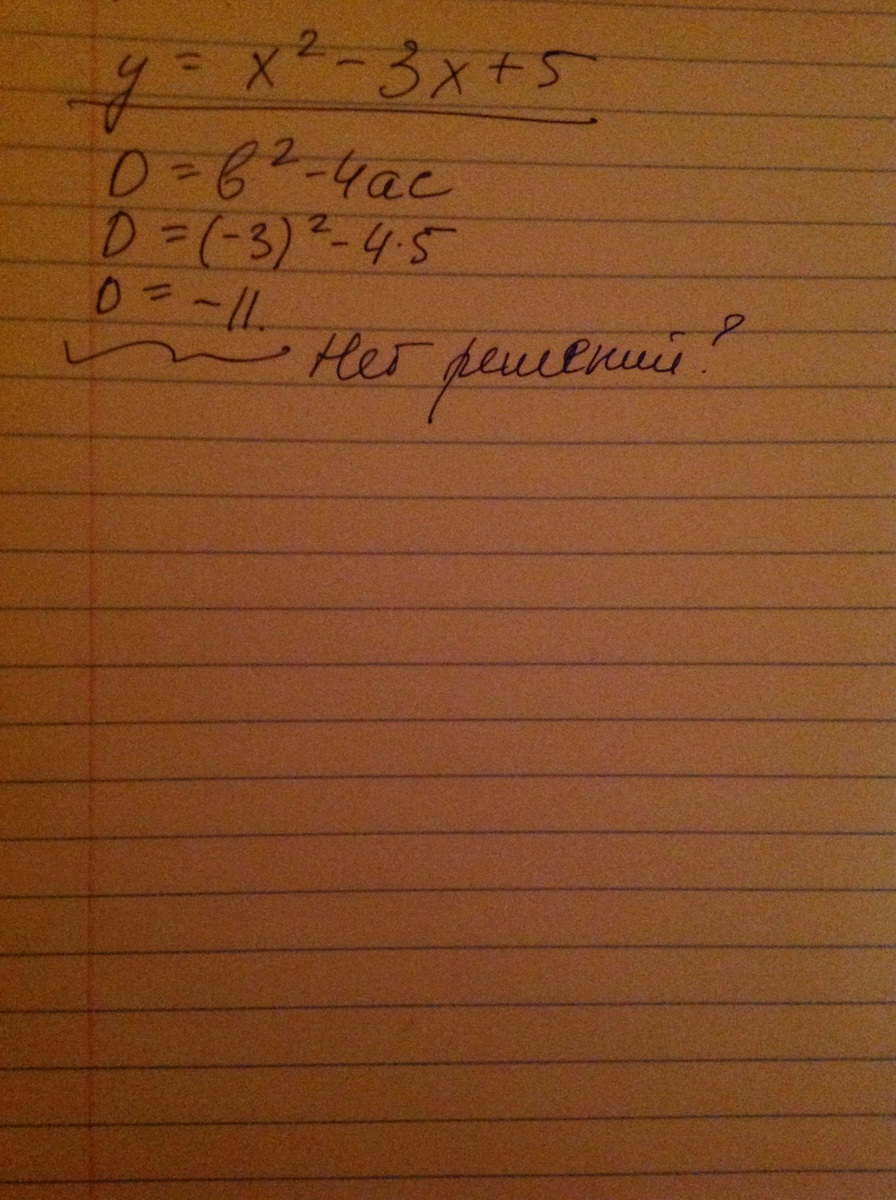 y = x² - 3x + 5
D = b² - 4ac
D = (-3)² - 4·5
D = -11.
Нет решений?